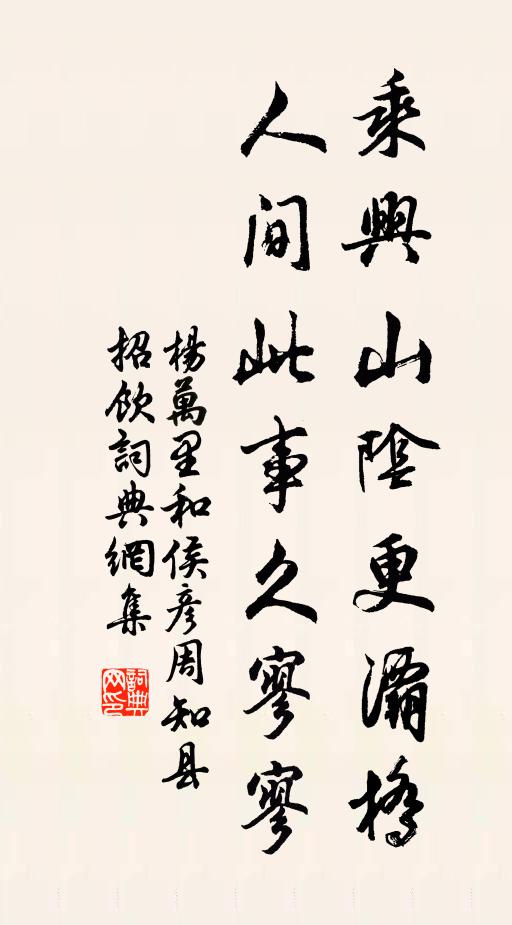 乘興山陰更灞橋
人間此事久寥寥
楊萬里和侯彥周知县
招飲詞典網集
詞典网印